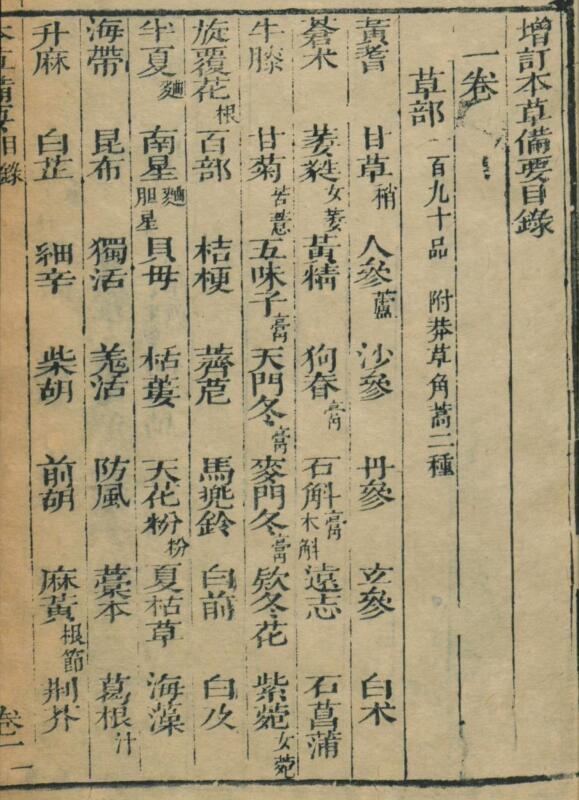 增訂本草備要目錄
一卷
草部 一百九十品 附莽草角蒿二種
黃耆 甘草稍 人參蘆 沙參 丹參 玄參 白朮
蒼朮 萎蕤女萎 黃精 狗脊膏 石斛膏木斛 遠志 石菖蒲
牛膝 甘菊苦薏 五味子膏 天門冬膏 麥門冬膏 欵冬花 紫菀女菀
旋覆花根 百部 桔梗 薺苨 馬兜鈴 白前 白及
半夏麯 南星麯胆星 貝母 栝蔞 天花粉粉 夏枯草 海藻
海帶 昆布 獨活 羗活 防風 藁本 葛根汁
升麻 白芷 細辛 柴胡 前胡 麻黃根節 荆芥
本草備要目錄 卷一 一